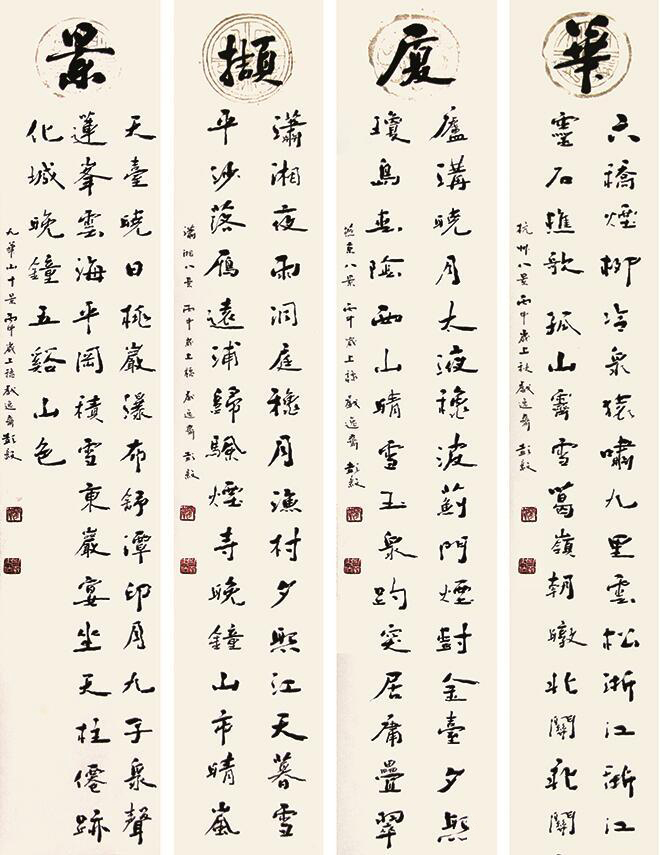 華
六橋煙柳冷泉猿嘯九里雲松浙江浙江
靈石樵歌孤山霽雪葛嶺朝暾北關北關
杭州八景 丙申歲上秋戲逸齋 彭紋
廈
廬溝曉月太液穐波薊門煙樹金臺夕照
瓊島春陰西山晴雪玉泉趵突居庸疊翠
燕京八景 丙申歲上穐戲逸齋 彭紋
擷
瀟湘夜雨洞庭穐月漁村夕照江天暮雪
平沙落雁遠浦歸颿煙寺晚鐘山市晴嵐
瀟湘八景 丙申歲上穐戲逸齋 彭紋
景
天臺曉日桃巖瀑布舒潭印月九子泉聲
蓮峯雲海平岡積雪東巖宴坐天柱僊跡
化城晚鐘五谿山色
九華山十景 丙申歲上穐戲逸齋 彭紋